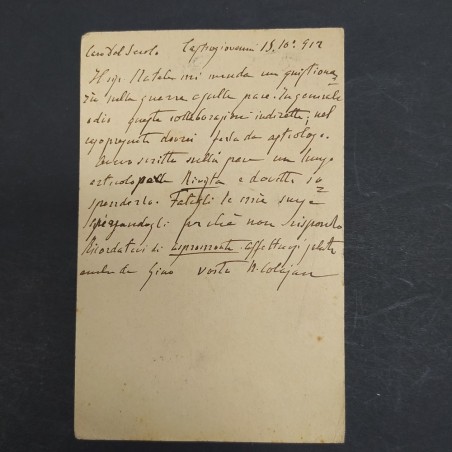 Caro Del Secolo Castrogiovanni 15. 10. 912
Il sig. Natale mi manda un questiona=
rio sulla guerra e sulla pace. In generale
odio queste collaborazioni indirette; nel
caso presente dovrei far da astrologo.
Avevo scritto sulla pace un lungo
articolo per la Rivista e dovetti so=
spenderlo. Fategli le mie scuse
spiegandogli perchè non rispondo
Ricordatevi di Aspromonte. Affettuosi saluti
anche da Gino vostro N. Colajanni